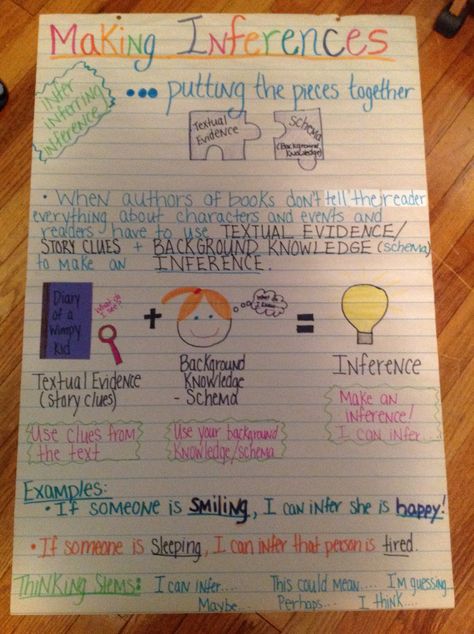 Making Inferences
Infer
Inferring
Inference
... putting the pieces together
Textual
Evidence
Schema
(Background
Knowledge)
• When authors of books don't tell the reader
everything about characters and events and
readers have to use TEXTUAL EVIDENCE/
STORY CLUES + BACKGROUND KNOWLEDGE (schema)
to make an INFERENCE.
Diary
of a
Wimpy
Kid
What do I
see?
+
What do I
know?
=
Textual Evidence
(story clues)
Background
Knowledge
- Schema
Inference
Use clues from
the text
Use your background
knowledge/schema
Make an
inference!
I can infer...
Examples:
• If someone is smiling, I can infer she is happy!
• If someone is sleeping, I can infer that person is tired.
Thinking Stems: I can infer.... This could mean.... I'm guessing...
Maybe... Perhaps... I think....